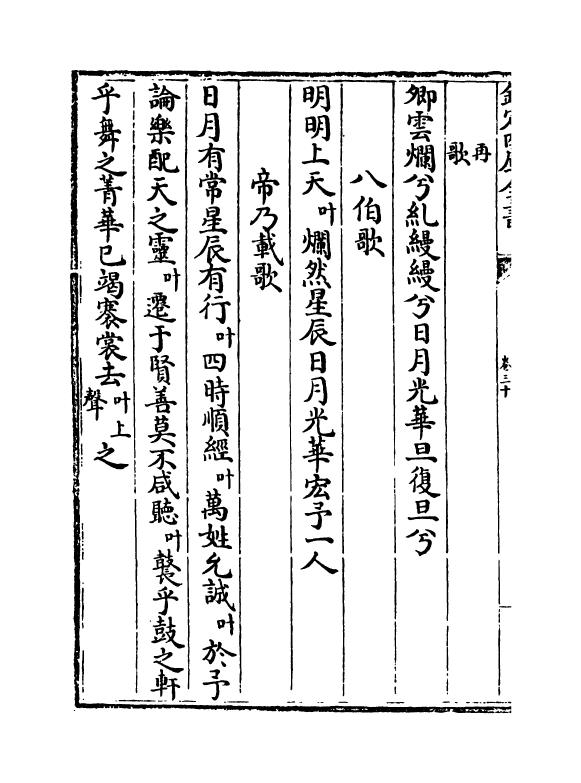 欽定四庫全書
卷三十
再歌
卿雲爛兮糺縵縵兮日月光華旦復旦兮
八伯歌
明明上天叶爛然星辰日月光華宏予一人
帝乃載歌
日月有常星辰有行叶四時順經叶萬姓允誠叶於予
論樂配天之靈叶遷于賢善莫不咸聽叶鼚乎鼓之軒
乎舞之菁華已竭褰裳去叶上聲之